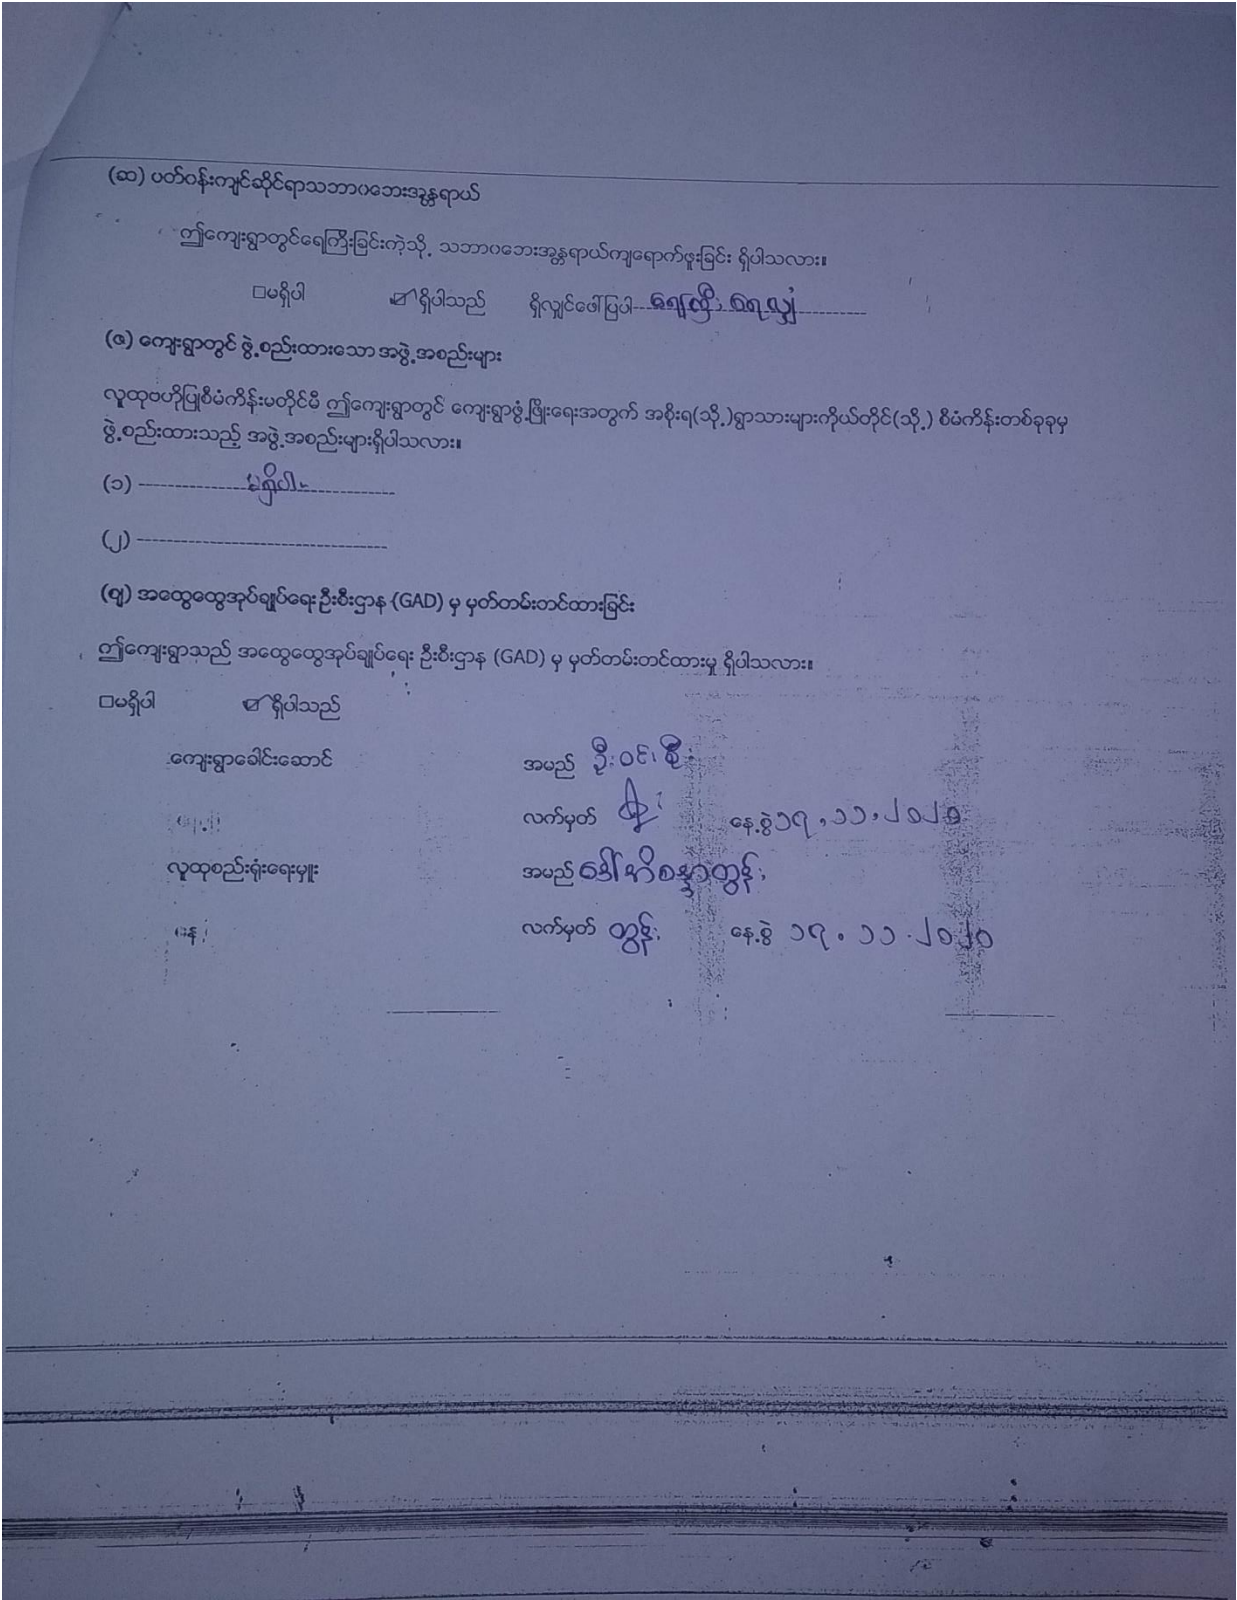 (ဆ) ပတ်ဝန်းကျင်ဆိုင်ရာသဘာဝဘေးအန္တရာယ်
ဤကျေးရွာတွင်ရေကြီးခြင်းကဲ့သို့ သဘာဝဘေးအန္တရာယ်ကျရောက်ဖူးခြင်း ရှိပါသလား။
□မရှိပါ ☑ရှိပါသည် ရှိလျှင်ဖော်ပြပါ---ရေကြီး ရေလျှံ----------
(ဇ) ကျေးရွာတွင် ဖွဲ့စည်းထားသော အဖွဲ့အစည်းများ
လူထုဗဟိုပြုစီမံကိန်းမတိုင်မီ ဤကျေးရွာတွင် ကျေးရွာဖွံ့ဖြိုးရေးအတွက် အစိုးရ(သို့)ရွာသားများကိုယ်တိုင်(သို့) စီမံကိန်းတစ်ခုခုမှ
ဖွဲ့စည်းထားသည့် အဖွဲ့အစည်းများရှိပါသလား။
(၁) ---------------မရှိပါ-------------
(၂) ----------------------------------
(ဈ) အထွေထွေအုပ်ချုပ်ရေးဦးစီးဌာန (GAD) မှ မှတ်တမ်းတင်ထားခြင်း
ဤကျေးရွာသည် အထွေထွေအုပ်ချုပ်ရေး ဦးစီးဌာန (GAD) မှ မှတ်တမ်းတင်ထားမှု ရှိပါသလား။
□မရှိပါ ☑ရှိပါသည်
ကျေးရွာခေါင်းဆောင် အမည် ဦးဝင်း
လက်မှတ် နေ့စွဲ ၁၇.၁၁.၂၀၂၀
လူထုစည်းရုံးရေးမှူး အမည် ဒေါ်
လက်မှတ် ထွန်း နေ့စွဲ ၁၇.၁၁.၂၀၂၀